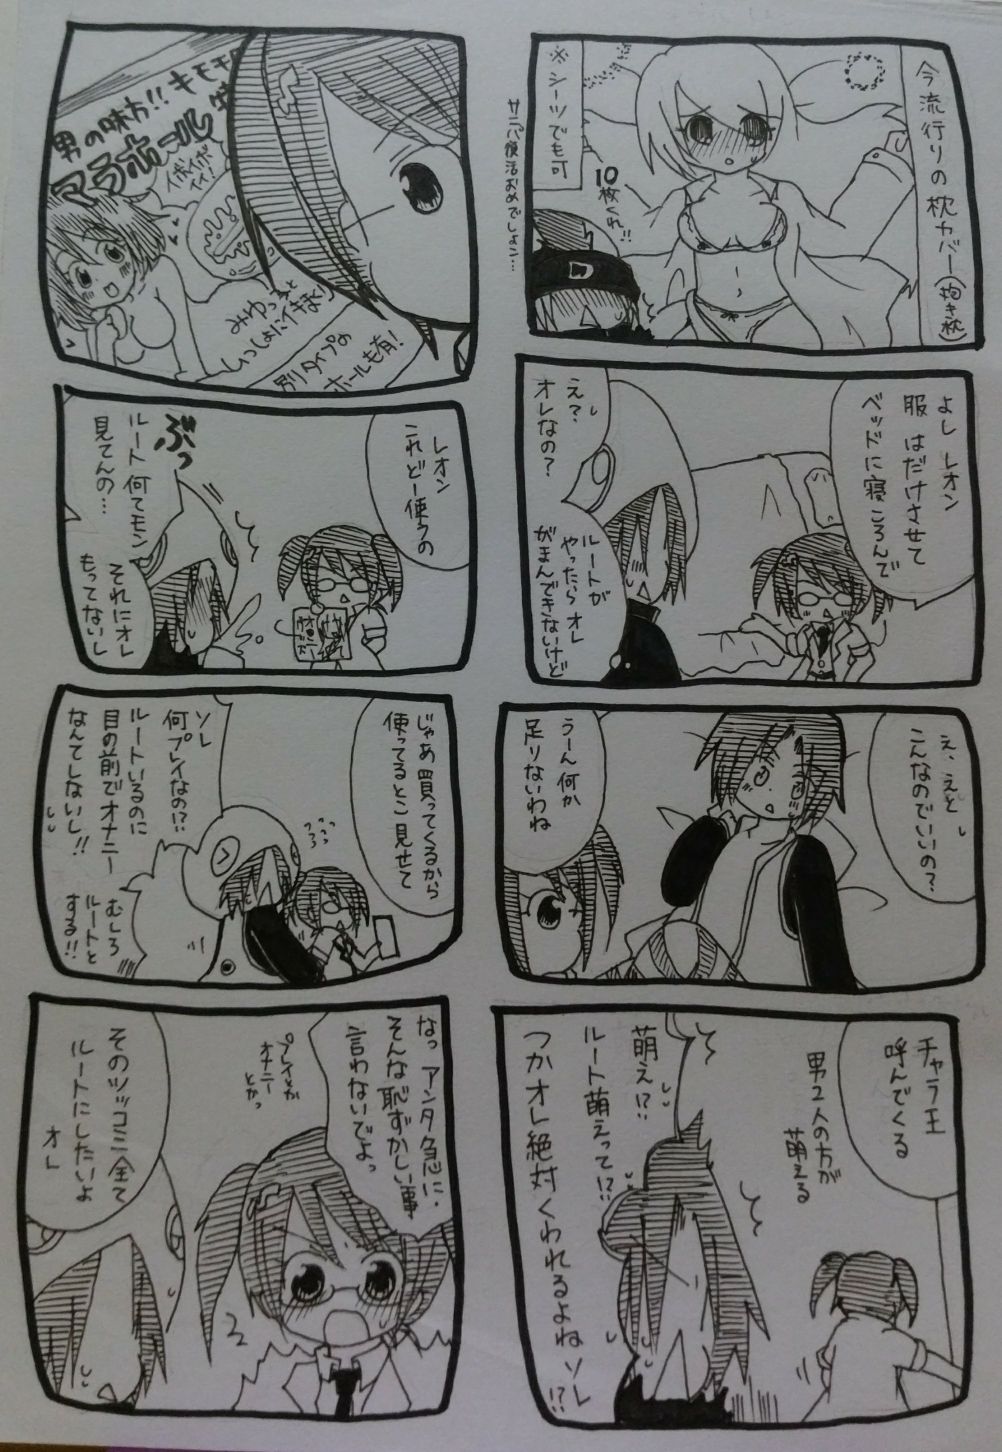 今流行りの枕カバー(抱き枕)
※シーツでも可
10枚くれ!!
サニパ復活おめでしょん…
よし レオン
服 はだけさせて
ベッドに寝ころんで
え?
オレなの?
ルートが
やったら オレ
がまんできないけど
え、えと
こんなのでいいの?
うーん何か
足りないわね
チャラ王
呼んでくる
男2人の方が
萌える
萌え!?
ルート萌えって!?
つかオレ絶対くわれるよねソレ!?
男の味方!!キモモモ
マラホール
イボイボ
イイ!
みゆっと
いっしょにイキまし
別タイプの
ホールも有!
レオン
これどー使うの
ぶっ
ルート何てモン
見てんの…
それにオレ
もってないし
じゃあ買ってくるから
使ってるとこ見せて
ソレ
何プレイなの!?
ルートいるのに
目の前でオナニー
なんてしないし!!
むしろ
ルートと
する!!
なっ アンタ急に
そんな恥ずかしい事
言わないでよっ
プレイとか
オナニー
とかっ
そのツッコミ全て
ルートにしたいよ
オレ